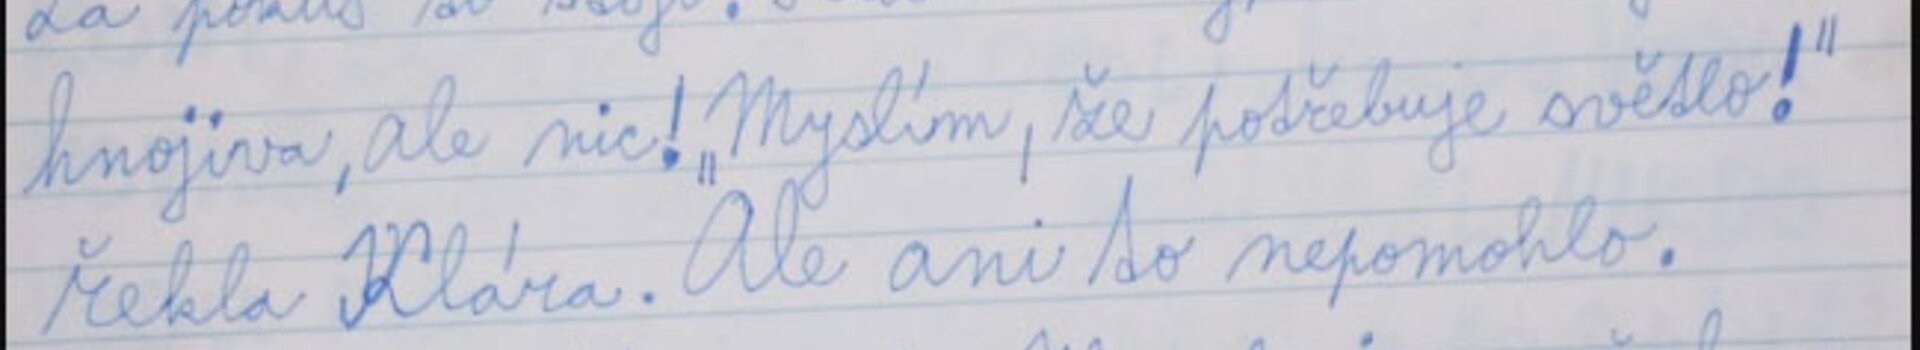 za pokus to stojí.
hnojiva, ale nic! „Myslím, že potřebuje světlo!"
řekla Klára. Ale ani to nepomohlo.